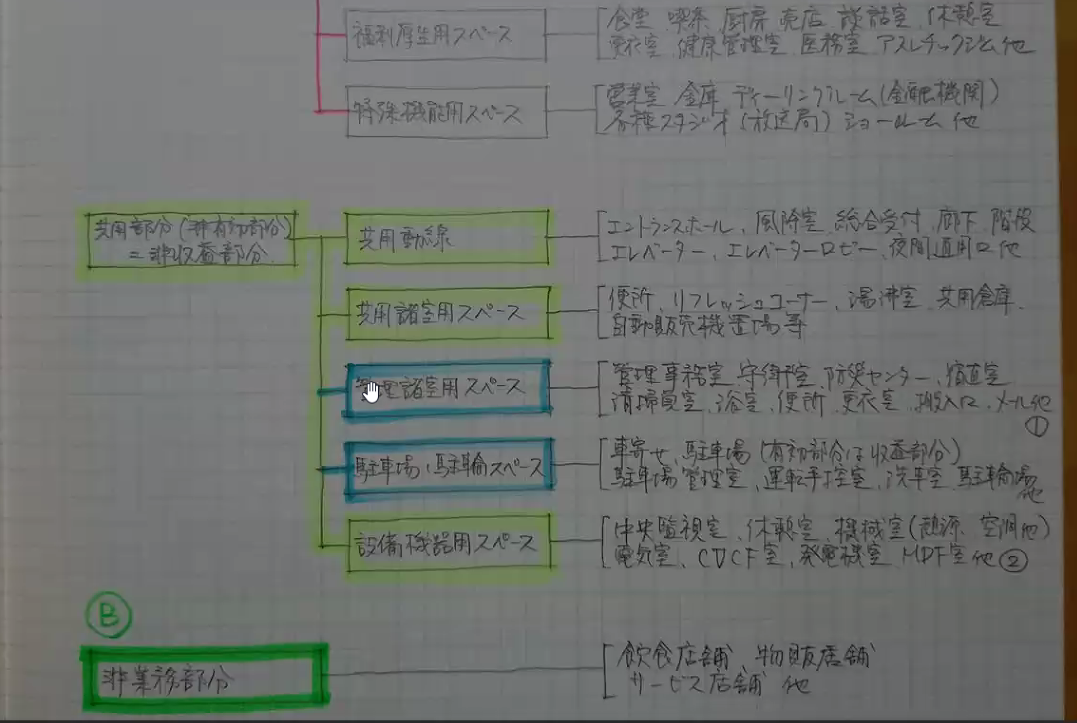 福利厚生用スペース
食堂 喫茶 厨房 売店 談話室 休憩室
更衣室 健康管理室 医務室 アスレチックジム他
特殊機能用スペース
営業室 金庫 ディーリングルーム(金融機関)
各種スタジオ(放送局) ショールーム他
共用部分(非有効部分)
=非収益部分
共用動線
エントランスホール、風除室 総合受付 廊下 階段
エレベーター、エレベーターロビー、夜間通用口他
共用諸室用スペース
便所、リフレッシュコーナー、湯沸室 共用倉庫
自動販売機置場等
管理諸室用スペース
管理事務室 守衛室 防災センター、宿直室
清掃員室、浴室、便所、更衣室 搬入口、メール他
①
駐車場、駐輪スペース
車寄せ、駐車場(有効部分は収益部分)
駐車場管理室、運転手控室、洗車室 駐輪場
他
設備機器用スペース
中央監視室、休憩室、機械室(熱源、空調他)
電気室、CVCF室、発電機室 MDF室他②
Ⓑ
非業務部分
飲食店舗、物販店舗
サービス店舗 他